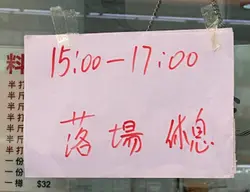 15:00-17:00
落場 休息
料
半打
半斤
半斤
半打
半打
一份
一份
一條 $32